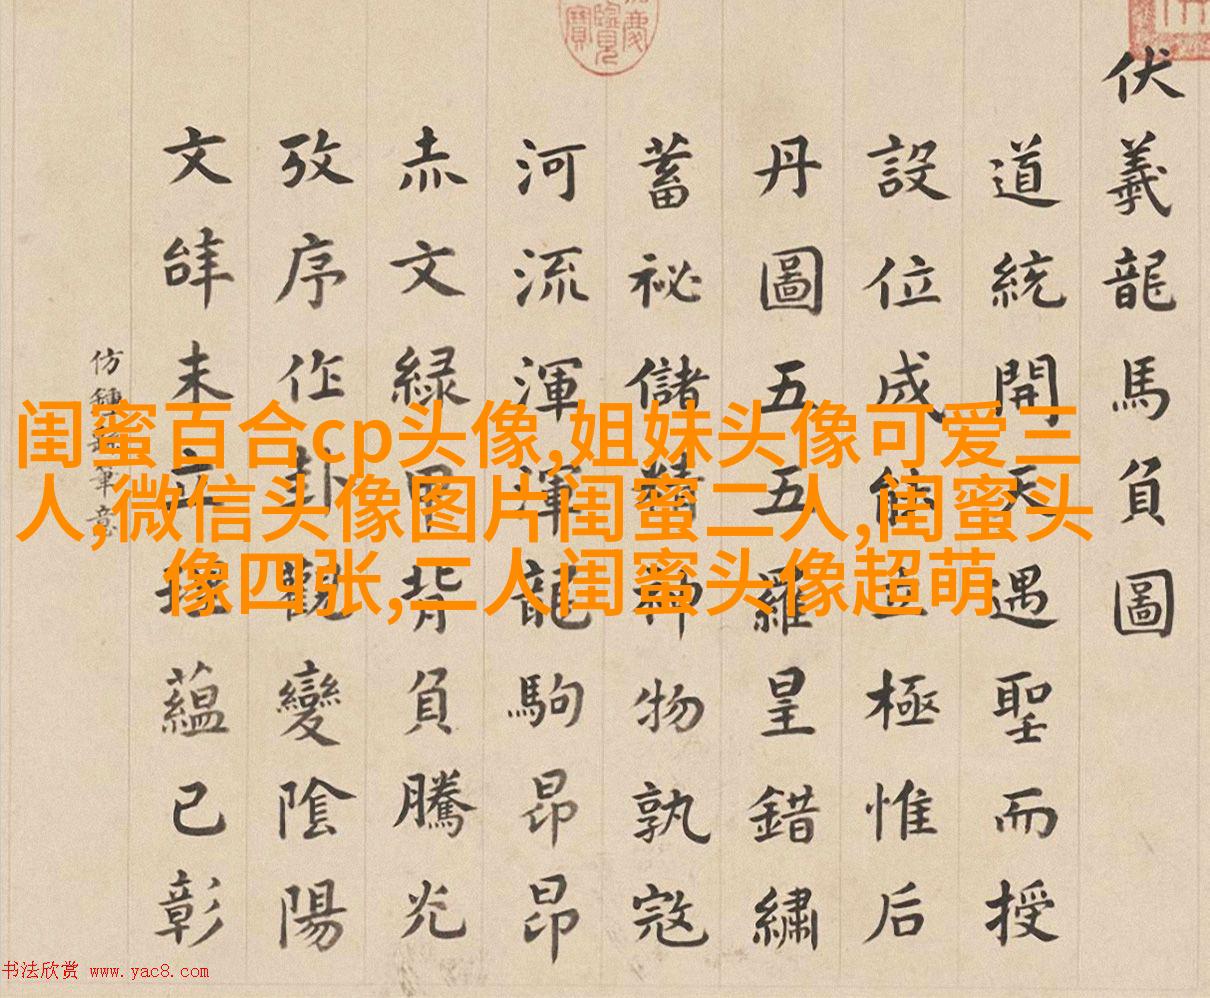 伏羲龍馬負圖
道統開天遇聖而授
設位成極惟后
丹圖五五羅皇錯繡
蓄祕儲精神物孰寇
河流渾渾龍駒昂昂
赤文緑甲背負騰光
攷序作卦觀變陰陽
文未立理蘊已彰
仿筆意
闺蜜百合cp头像,姐妹头像可爱三
人,微信头像图片闺蜜二人,闺蜜头
像四张,二人闺蜜头像超萌
书法欣赏 www.yac8.com